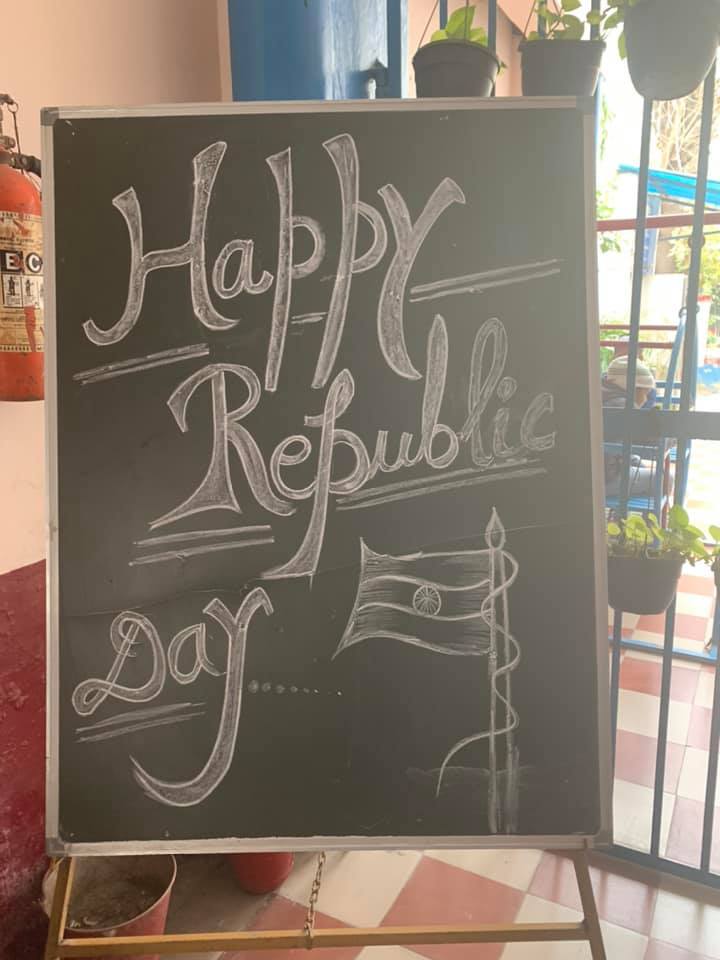 Happy
Republic
Day......